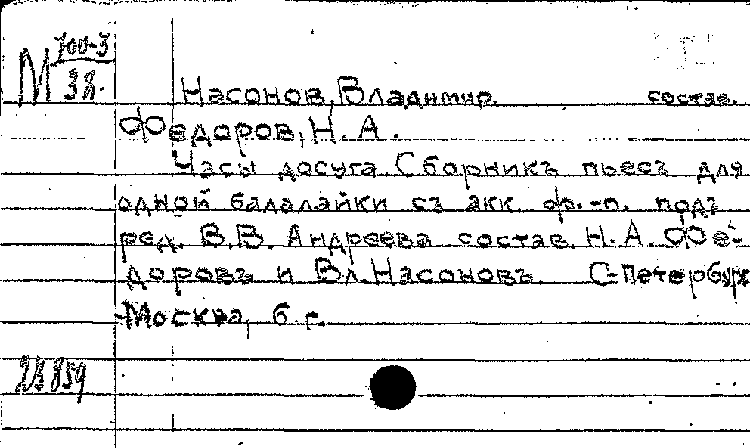 М 700-3
38.
Насонов, Владимир. состав.
Федоров, Н. А.
Часы досуга. Сборникъ пьесъ для
одной балалайки съ акк. ф.-п. подъ
ред. В. В. Андреева состав. Н. А. Фе-
доровъ и Вл. Насоновъ. С-Петербург
Москва, б. г.
28859